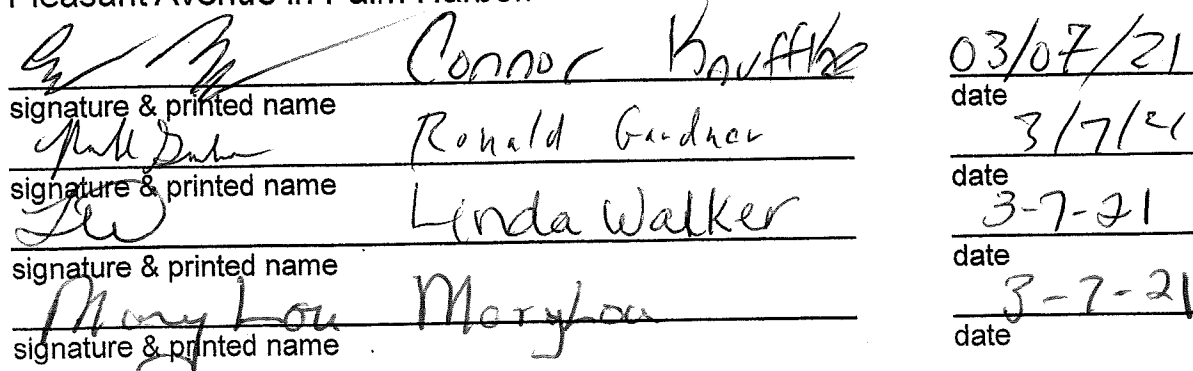 Pleasant Avenue in Palm Harbor.
Connor 03/07/21
signature & printed name date
Ronald Gardner 3/7/21
signature & printed name date
LW Linda Walker 3-7-21
signature & printed name date
Mary Lou MaryLou 3-7-21
signature & printed name date